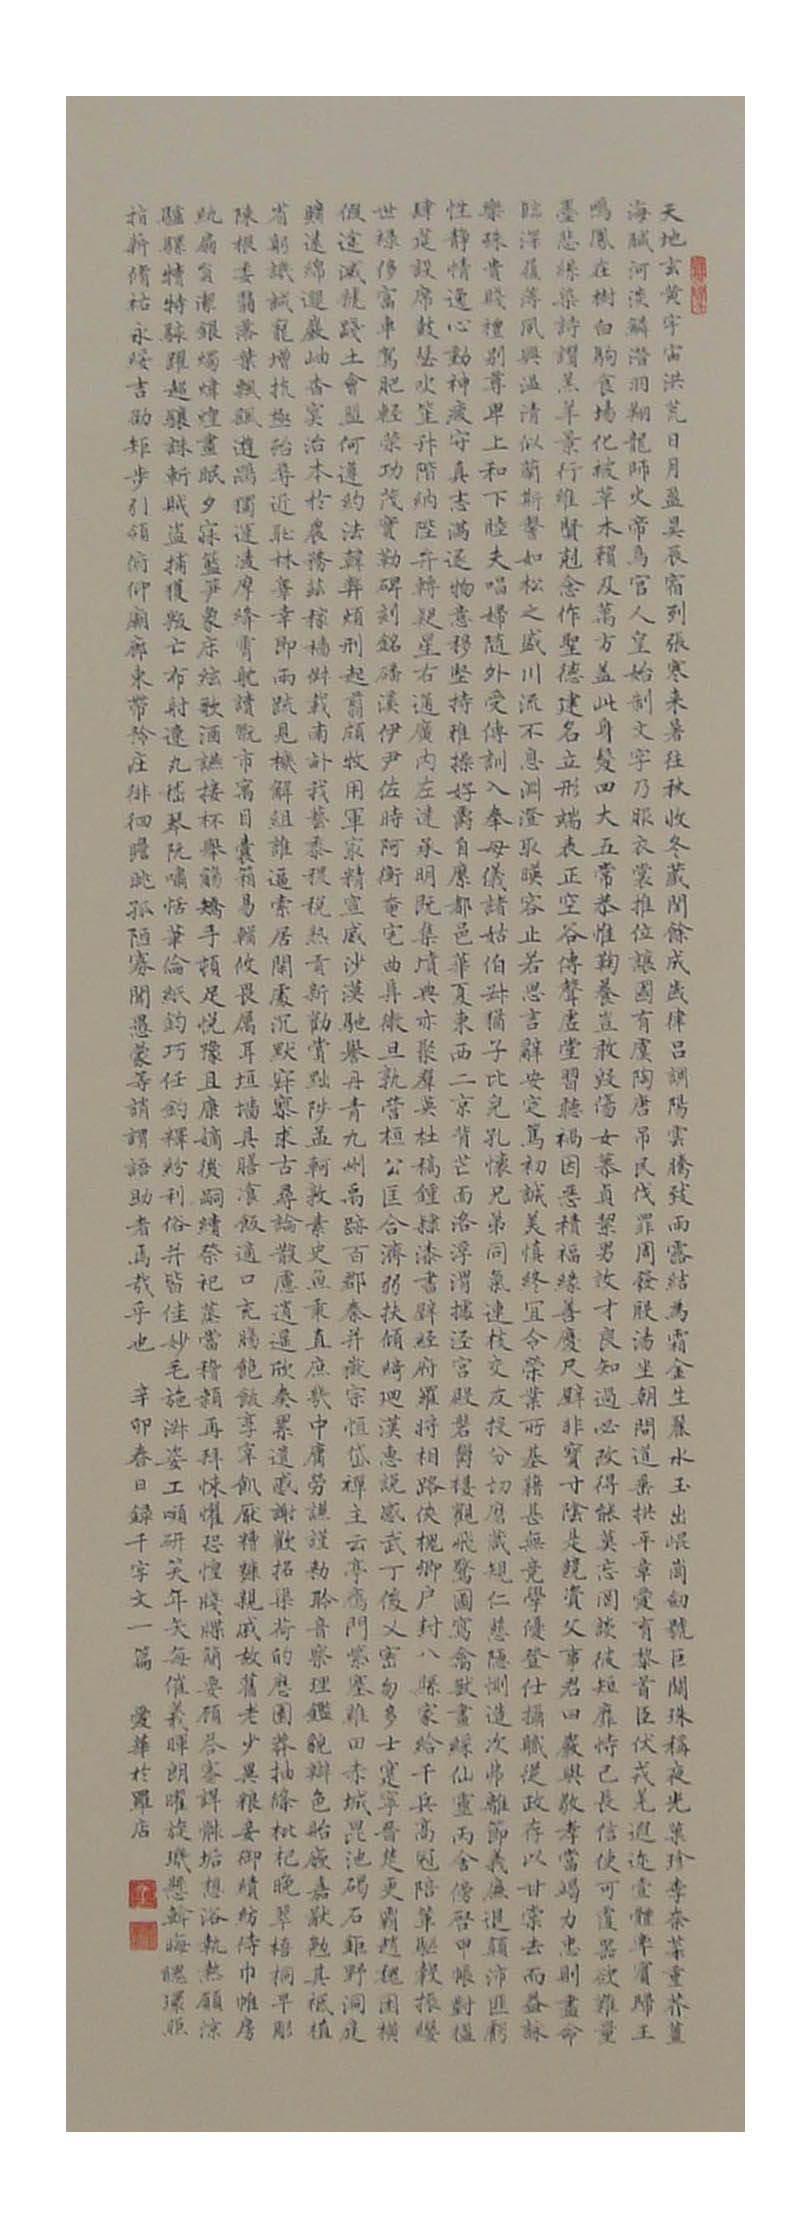 天地玄黃宇宙洪荒日月盈昃辰宿列張寒来暑往秋收冬藏閏餘成歲律呂調陽雲騰致雨露結為霜金生麗水玉出崐崗劍號巨闕珠稱夜光菓珍李柰菜重芥薑
海鹹河淡鱗潛羽翔龍師火帝鳥官人皇始制文字乃服衣裳推位讓國有虞陶唐吊民伐罪周發殷湯坐朝問道垂拱平章愛育黎首臣伏戎羌遐迩壹體率賓歸王
鳴鳳在樹白駒食場化被草木賴及萬方蓋此身髮四大五常恭惟鞠養豈敢毀傷女慕貞絜男效才良知過必改得能莫忘罔談彼短靡恃己長信使可覆器欲難量
墨悲絲染詩讃羔羊景行維賢剋念作聖德建名立形端表正空谷傳聲虛堂習聽禍因惡積福緣善慶尺璧非寶寸陰是競資父事君曰嚴與敬孝當竭力忠則盡命
臨深履薄夙興溫清似蘭斯馨如松之盛川流不息淵澄取暎容止若思言辭安定篤初誠美慎終宜令榮業所基籍甚無竟學優登仕攝職從政存以甘棠去而益詠
樂殊貴賤禮別尊卑上和下睦夫唱婦隨外受傅訓入奉母儀諸姑伯叔猶子比兒孔懷兄弟同氣連枝交友投分切磨箴規仁慈隱惻造次弗離節義廉退顛沛匪虧
性靜情逸心動神疲守真志滿逐物意移堅持雅操好爵自縻都邑華夏東西二京背芒面洛浮渭據涇宮殿磐鬱樓觀飛驚圖寫禽獸畫綵仙靈丙舍傍啓甲帳對楹
肆筵設席鼓瑟吹笙升階納陛弁轉疑星右通廣內左達承明既集墳典亦聚群英杜稿鍾隸漆書壁經府羅將相路俠槐卿户封八縣家給千兵高冠陪輦驅轂振纓
世祿侈富車駕肥輕榮功茂實勒碑刻銘磻溪伊尹佐時阿衡奄宅曲阜微旦孰營桓公匡合濟弱扶傾綺迴漢惠說感武丁俊乂密勿多士寔寧晉楚更霸趙魏困橫
假途滅虢踐土會盟何遵約法韓弊煩刑起翦頗牧用軍最精宣威沙漠馳譽丹青九州禹跡百郡秦并嶽宗恒岱禪主云亭雁門紫塞雞田赤城昆池碣石鉅野洞庭
曠遠綿邈巖岫杳冥治本於農務茲稼穡俶載南畝我藝黍稷稅熟貢新勸賞黜陟孟軻敦素史魚秉直庶幾中庸勞謙謹勅聆音察理鑑貌辯色貽厥嘉猷勉其祗植
省躬譏誡寵增抗極殆辱近恥林皋幸即兩疏見機解組誰逼索居閑處沉默寂寥求古尋論散慮逍遥欣奏累遣慼謝歡招渠荷的歷園莽抽條枇杷晚翠梧桐早彫
陳根委翳落葉飄颻遊鵾獨運凌摩絳霄耽讀翫市寓目囊箱易輶攸畏屬耳垣墻具膳飡飯適口充腸飽飫享宰飢厭糟糠親戚故舊老少異粮妾御績紡侍巾帷房
紈扇圓潔銀燭煒煌晝眠夕寐藍筍象床絃歌酒讌接杯舉觴矯手頓足悅豫且康嫡後嗣續祭祀蒸嘗稽顙再拜悚懼恐惶牋牒簡要顧答審詳骸垢想浴執熱願涼
驢騾犢特駭躍超驤誅斬賊盜捕獲叛亡布射遼丸嵇琴阮嘯恬筆倫紙鈞巧任釣釋紛利俗并皆佳妙毛施淑姿工嚬研笑年矢每催羲暉朗曜旋璣懸斡晦魄環照
指薪脩祜永綏吉劭矩步引領俯仰廊廟束帶矜庄徘徊瞻眺孤陋寡聞愚蒙等誚謂語助者焉哉乎也 辛卯春日錄千字文一篇 愛華於羅店